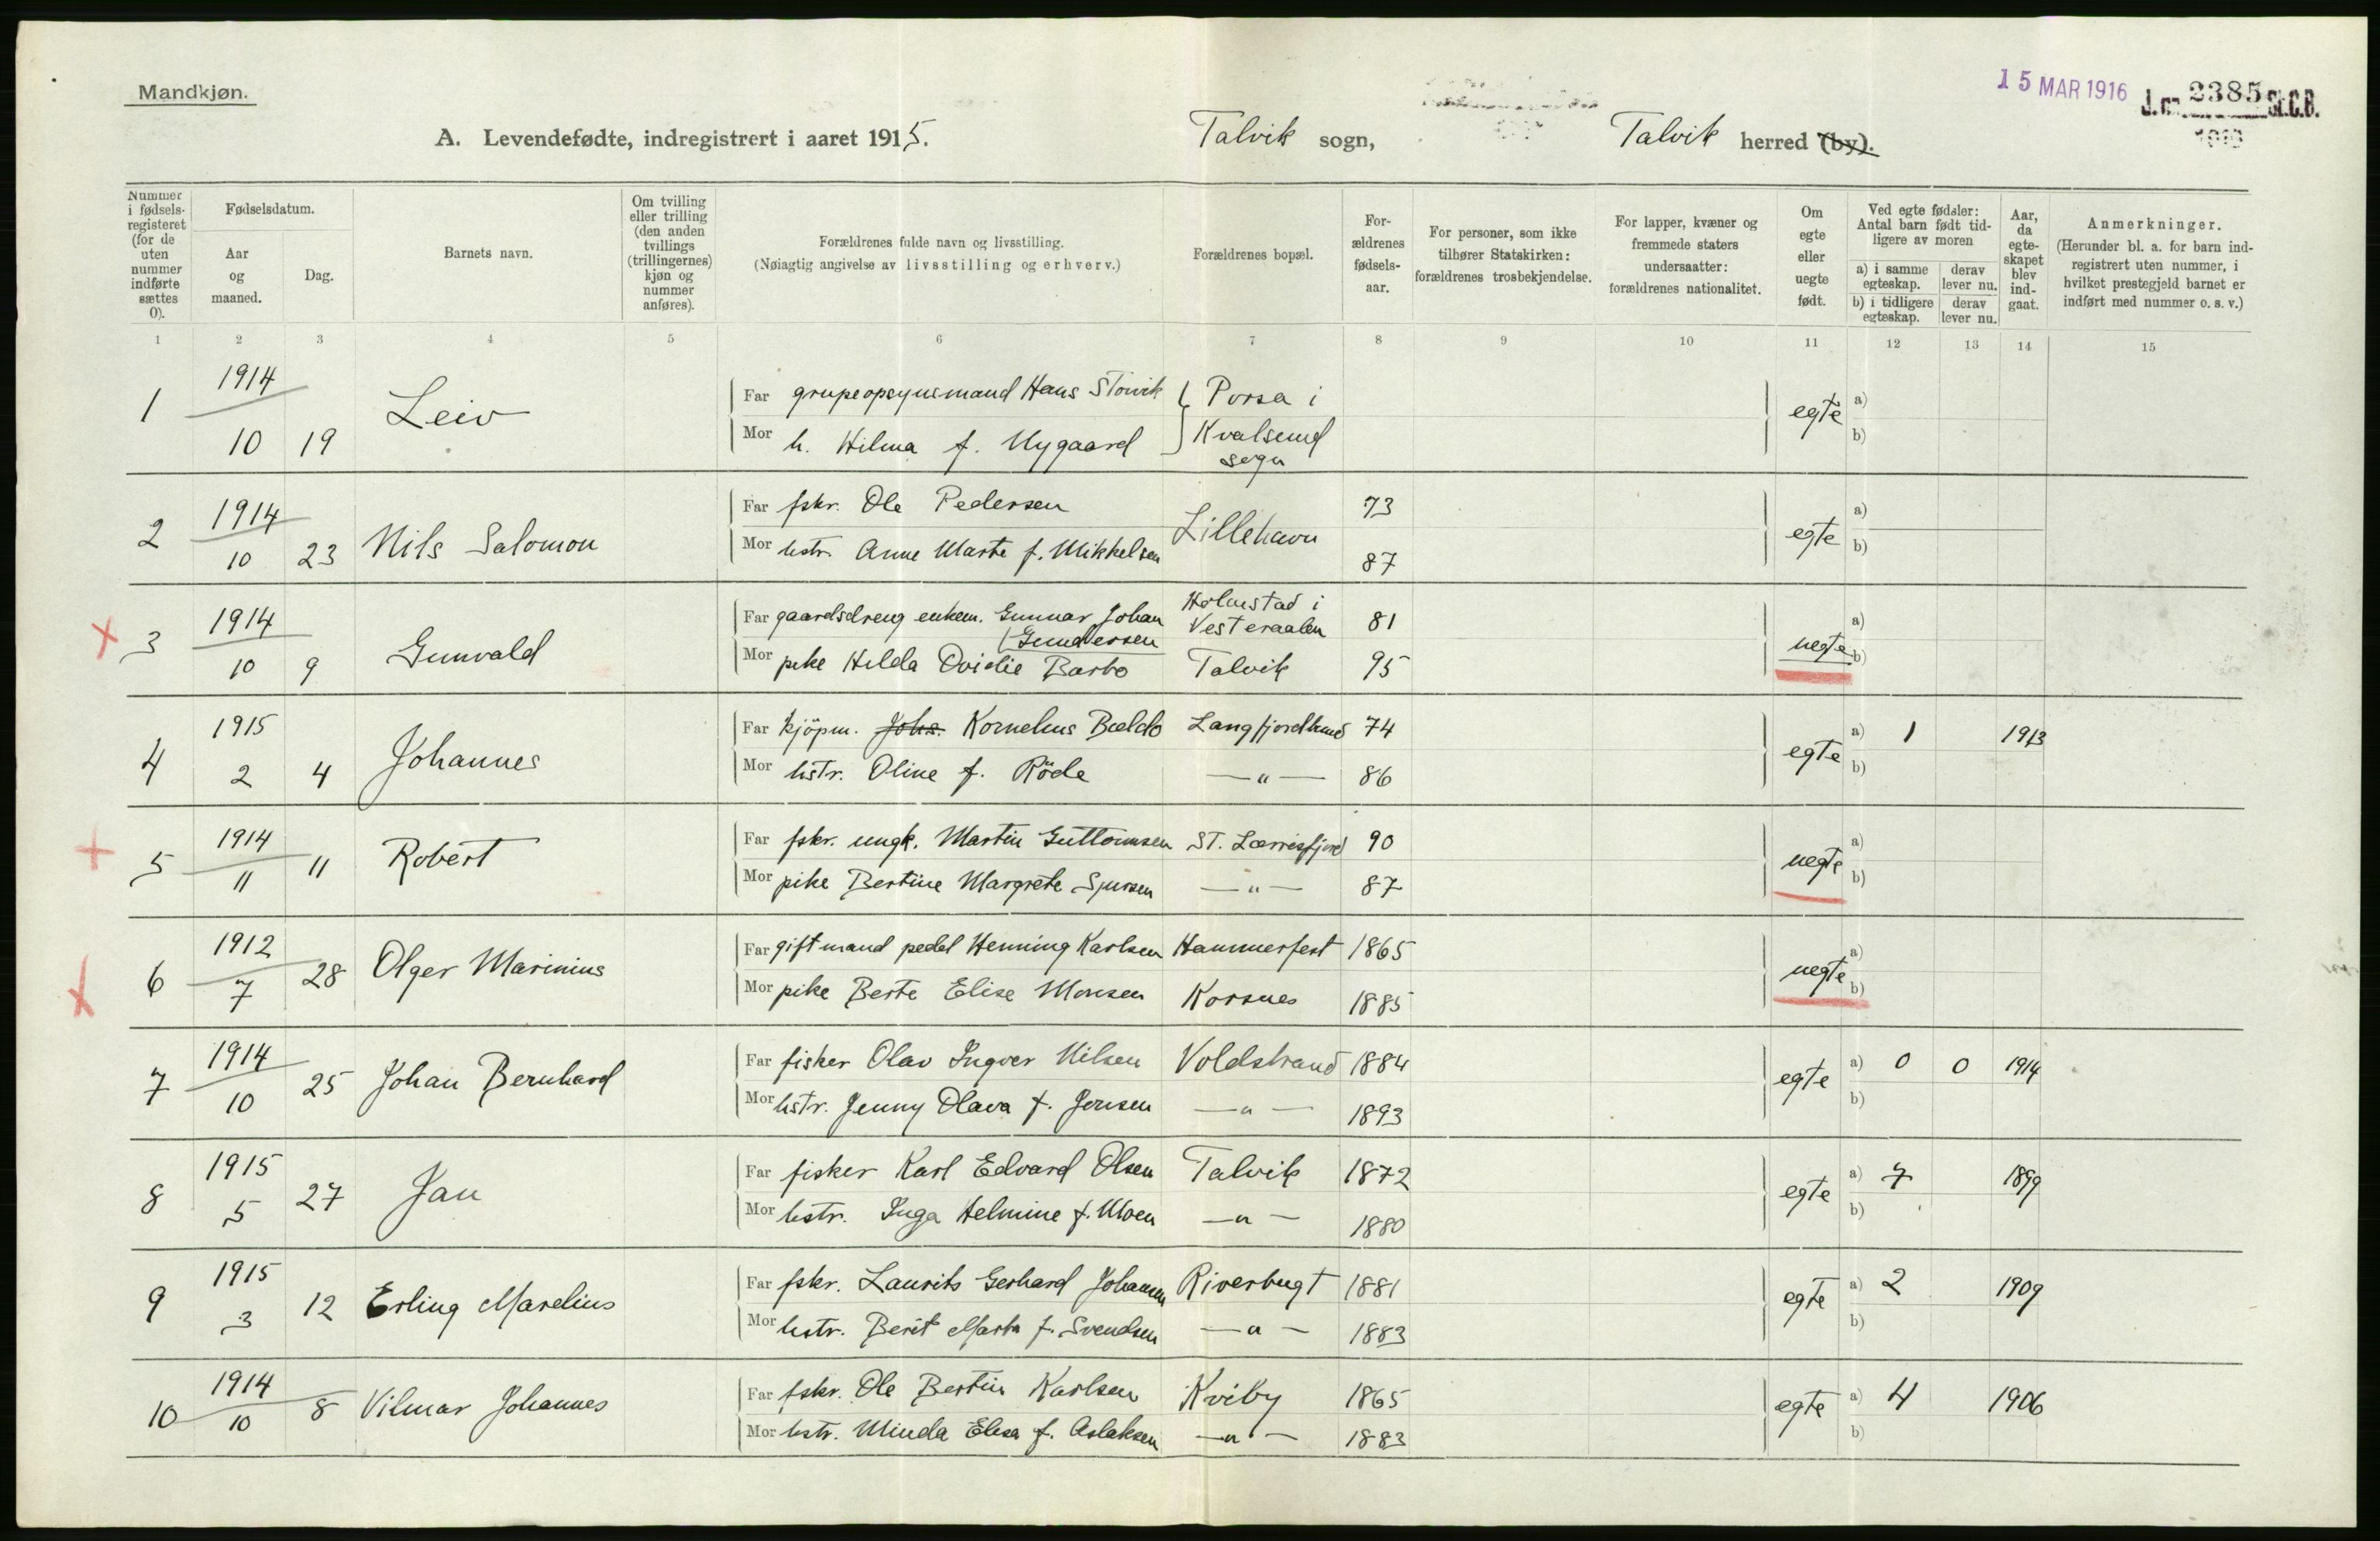 15 MAR 1916
J. nr. 2385 St.C.B.
Mandkjøn.
A. Levendefødte, indregistrert i aaret 1915. Talvik sogn, Talvik herred (by).
Nummer i fødsels- registeret (for de uten nummer indførte sættes 0).
Fødselsdatum.
Aar og maaned.
Dag.
Barnets navn.
Om tvilling eller trilling (den anden tvillings (trillingernes) kjøn og nummer anføres).
Forældrenes fulde navn og livsstilling.
(Nøiagtig angivelse av livsstilling og erhverv.)
Forældrenes bopæl.
For- ældrenes fødsels- aar.
For personer, som ikke tilhører Statskirken: forældrenes trosbekjendelse.
For lapper, kvæner og fremmede staters undersaatter: forældrenes nationalitet.
Om egte eller uegte født.
Ved egte fødsler: Antal barn født tid- ligere av moren
a) i samme egteskap.
derav lever nu.
b) i tidligere egteskap.
derav lever nu.
Aar, da egte- skapet blev ind- gaat.
Anmerkninger.
(Herunder bl. a. for barn ind- registrert uten nummer, i hvilket prestegjeld barnet er indført med nummer o. s. v.)
1 2 3 4 5 6 7 8 9 10 11 12 13 14 15
1 1914 10 19 Leiv
Far grupeopsynsmand Hans Storvik Porsa i
Mor h. Hilma f. Nygaard Kvalsund sogn
egte a) b)
2 1914 10 23 Nils Salomon
Far fskr. Ole Pedersen Lillehavn 73
Mor hstr. Anne Marte f. Mikkelsen 87
egte a) b)
3 1914 10 9 Gunvald
Far gaardsdreng enkem. Gunnar Johan Gundersen Holmstad i Vesteraalen 81
Mor pike Hilda Ovidie Barbo Talvik 95
uegte a) b)
4 1915 2 4 Johannes
Far kjöpm. Johs. Kornelius Bældo Langfjordbund 74
Mor hstr. Oline f. Röde —"— 86
egte a) 1 1913 b)
5 1914 11 11 Robert
Far fskr. ungk. Martin Guttormsen St. Lærrisfjord 90
Mor pike Bertine Margrete Sjursen —"— 87
uegte a) b)
6 1912 7 28 Olger Marinius
Far gift mand pedel Henning Karlsen Hammerfest 1865
Mor pike Berte Elise Monsen Korsnes 1885
uegte a) b)
7 1914 10 25 Johan Bernhard
Far fisker Olav Ingver Nilsen Voldstrand 1884
Mor hstr. Jenny Olava f. Jensen —"— 1893
egte a) 0 0 1914 b)
8 1915 5 27 Jan
Far fisker Karl Edvard Olsen Talvik 1872
Mor hstr. Inga Helmine f. Moen —"— 1880
egte a) 7 1899 b)
9 1915 3 12 Erling Marelius
Far fskr. Laurits Gerhard Johansen Riverbugt 1881
Mor hstr. Berit Marta f. Svendsen —"— 1883
egte a) 2 1909 b)
10 1914 10 8 Vilmar Johannes
Far fskr. Ole Bertin Karlsen Kviby 1865
Mor hstr. Minda Elesa f. Aslaksen —"— 1883
egte a) 4 1906 b)